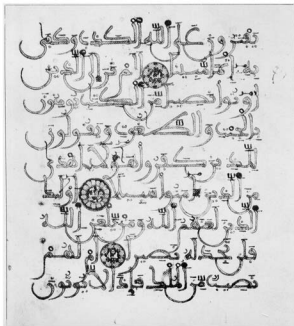 يفترون على الله الكذب وكفى
به إثما مبينا ألم تر إلى الذين
أوتوا نصيبا من الكتب يومنون
بالجبت والطغوت ويقولون
للذين كفروا هؤلاء أهدى
من الذين ءامنوا سبيلا أولئك
الذين لعنهم الله ومن يلعن الله
فلن تجد له نصيرا أم لهم
نصيب من الملك فإذا لا يوتون